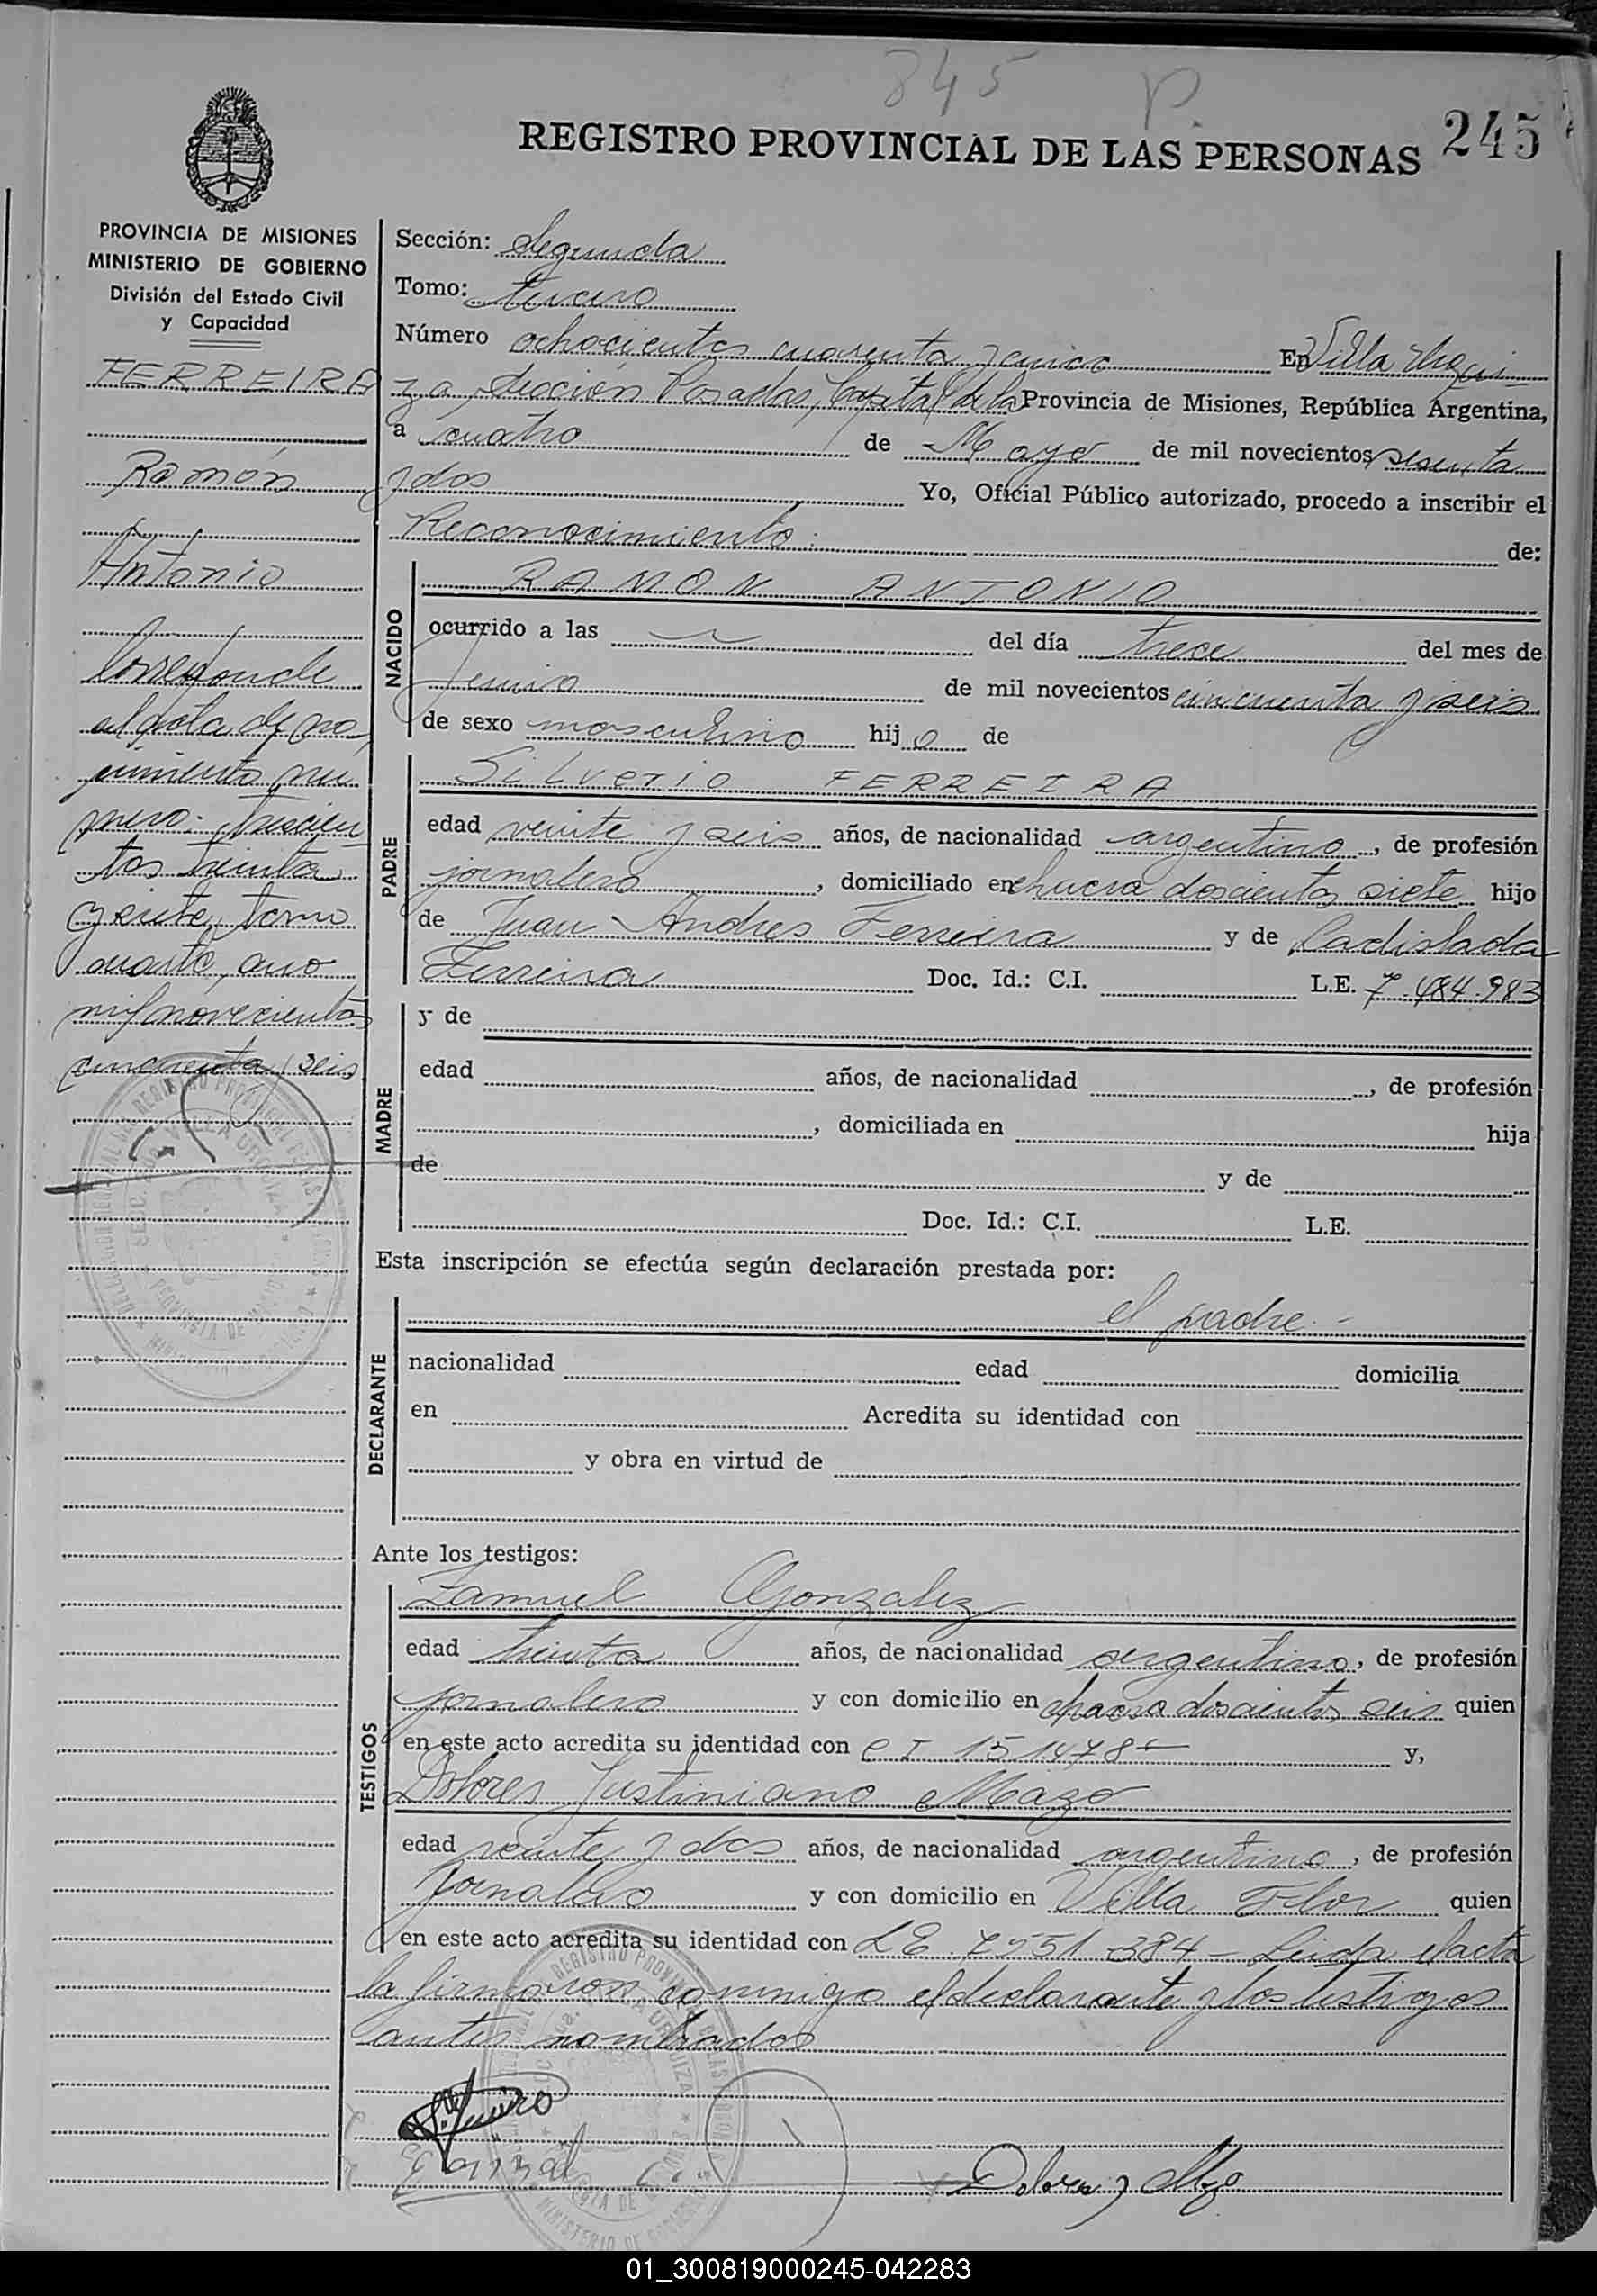 845 P.
REGISTRO PROVINCIAL DE LAS PERSONAS 245
PROVINCIA DE MISIONES
MINISTERIO DE GOBIERNO
División del Estado Civil
y Capacidad
FERREIRA
Ramón
Antonio
Corresponde
al acta de na
cimiento nú
mero: Trescien
tos treinta
y siete, tomo
cuarto, año
mil novecientos
cincuenta y seis
Sección: Segunda
Tomo: tercero
Número ochocientos cuarenta y cinco En Villa Urqui-
za, Sección Posadas, Capital de la Provincia de Misiones, República Argentina,
a cuatro de Mayo de mil novecientos sesenta
y dos Yo, Oficial Público autorizado, procedo a inscribir el
Reconocimiento: de:
NACIDO
RAMON ANTONIO
ocurrido a las del día trece del mes de
Junio de mil novecientos cincuenta y seis
de sexo masculino hijo de
PADRE
Silverio FERREIRA
edad veinte y seis años, de nacionalidad argentino, de profesión
jornalero, domiciliado en chacra doscientos siete hijo
de Juan Andres Ferreira y de Ladislada
Ferreira Doc. Id.: C.I. L.E. 7.484.983
MADRE
y de
edad años, de nacionalidad , de profesión
, domiciliada en hija
de y de
Doc. Id.: C.I. L.E.
Esta inscripción se efectúa según declaración prestada por:
DECLARANTE
el padre.-
nacionalidad edad domicilia
en Acredita su identidad con
y obra en virtud de
Ante los testigos:
TESTIGOS
Zamuel Gonzalez
edad treinta años, de nacionalidad argentino, de profesión
jornalero y con domicilio en chacra doscientos seis quien
en este acto acredita su identidad con C I 151478 y,
Dolores Justiniano Mazo
edad veinte y dos años, de nacionalidad argentino, de profesión
Jornalero y con domicilio en Villa Flor quien
en este acto acredita su identidad con LE 7551384 - Leida el acta
la firmaron conmigo el declarante y los testigos
antes nombrados
01_300819000245-042283